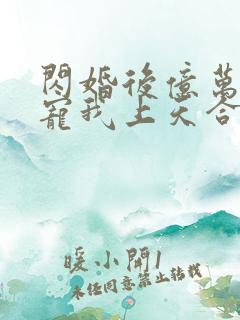 閃婚後億萬
寵我上天合
暖小開1
未經同意禁止轉載